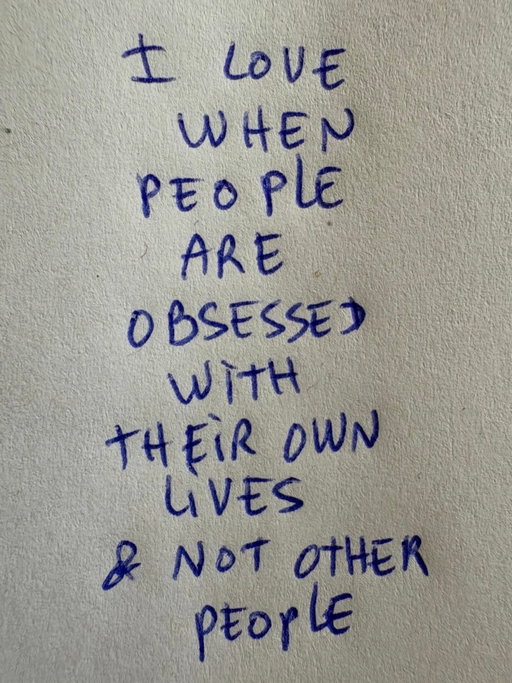 I LOVE
WHEN
PEOPLE
ARE
OBSESSED
WiTH
THEiR OWN
LiVES
& NOT OTHER
PEOPLE